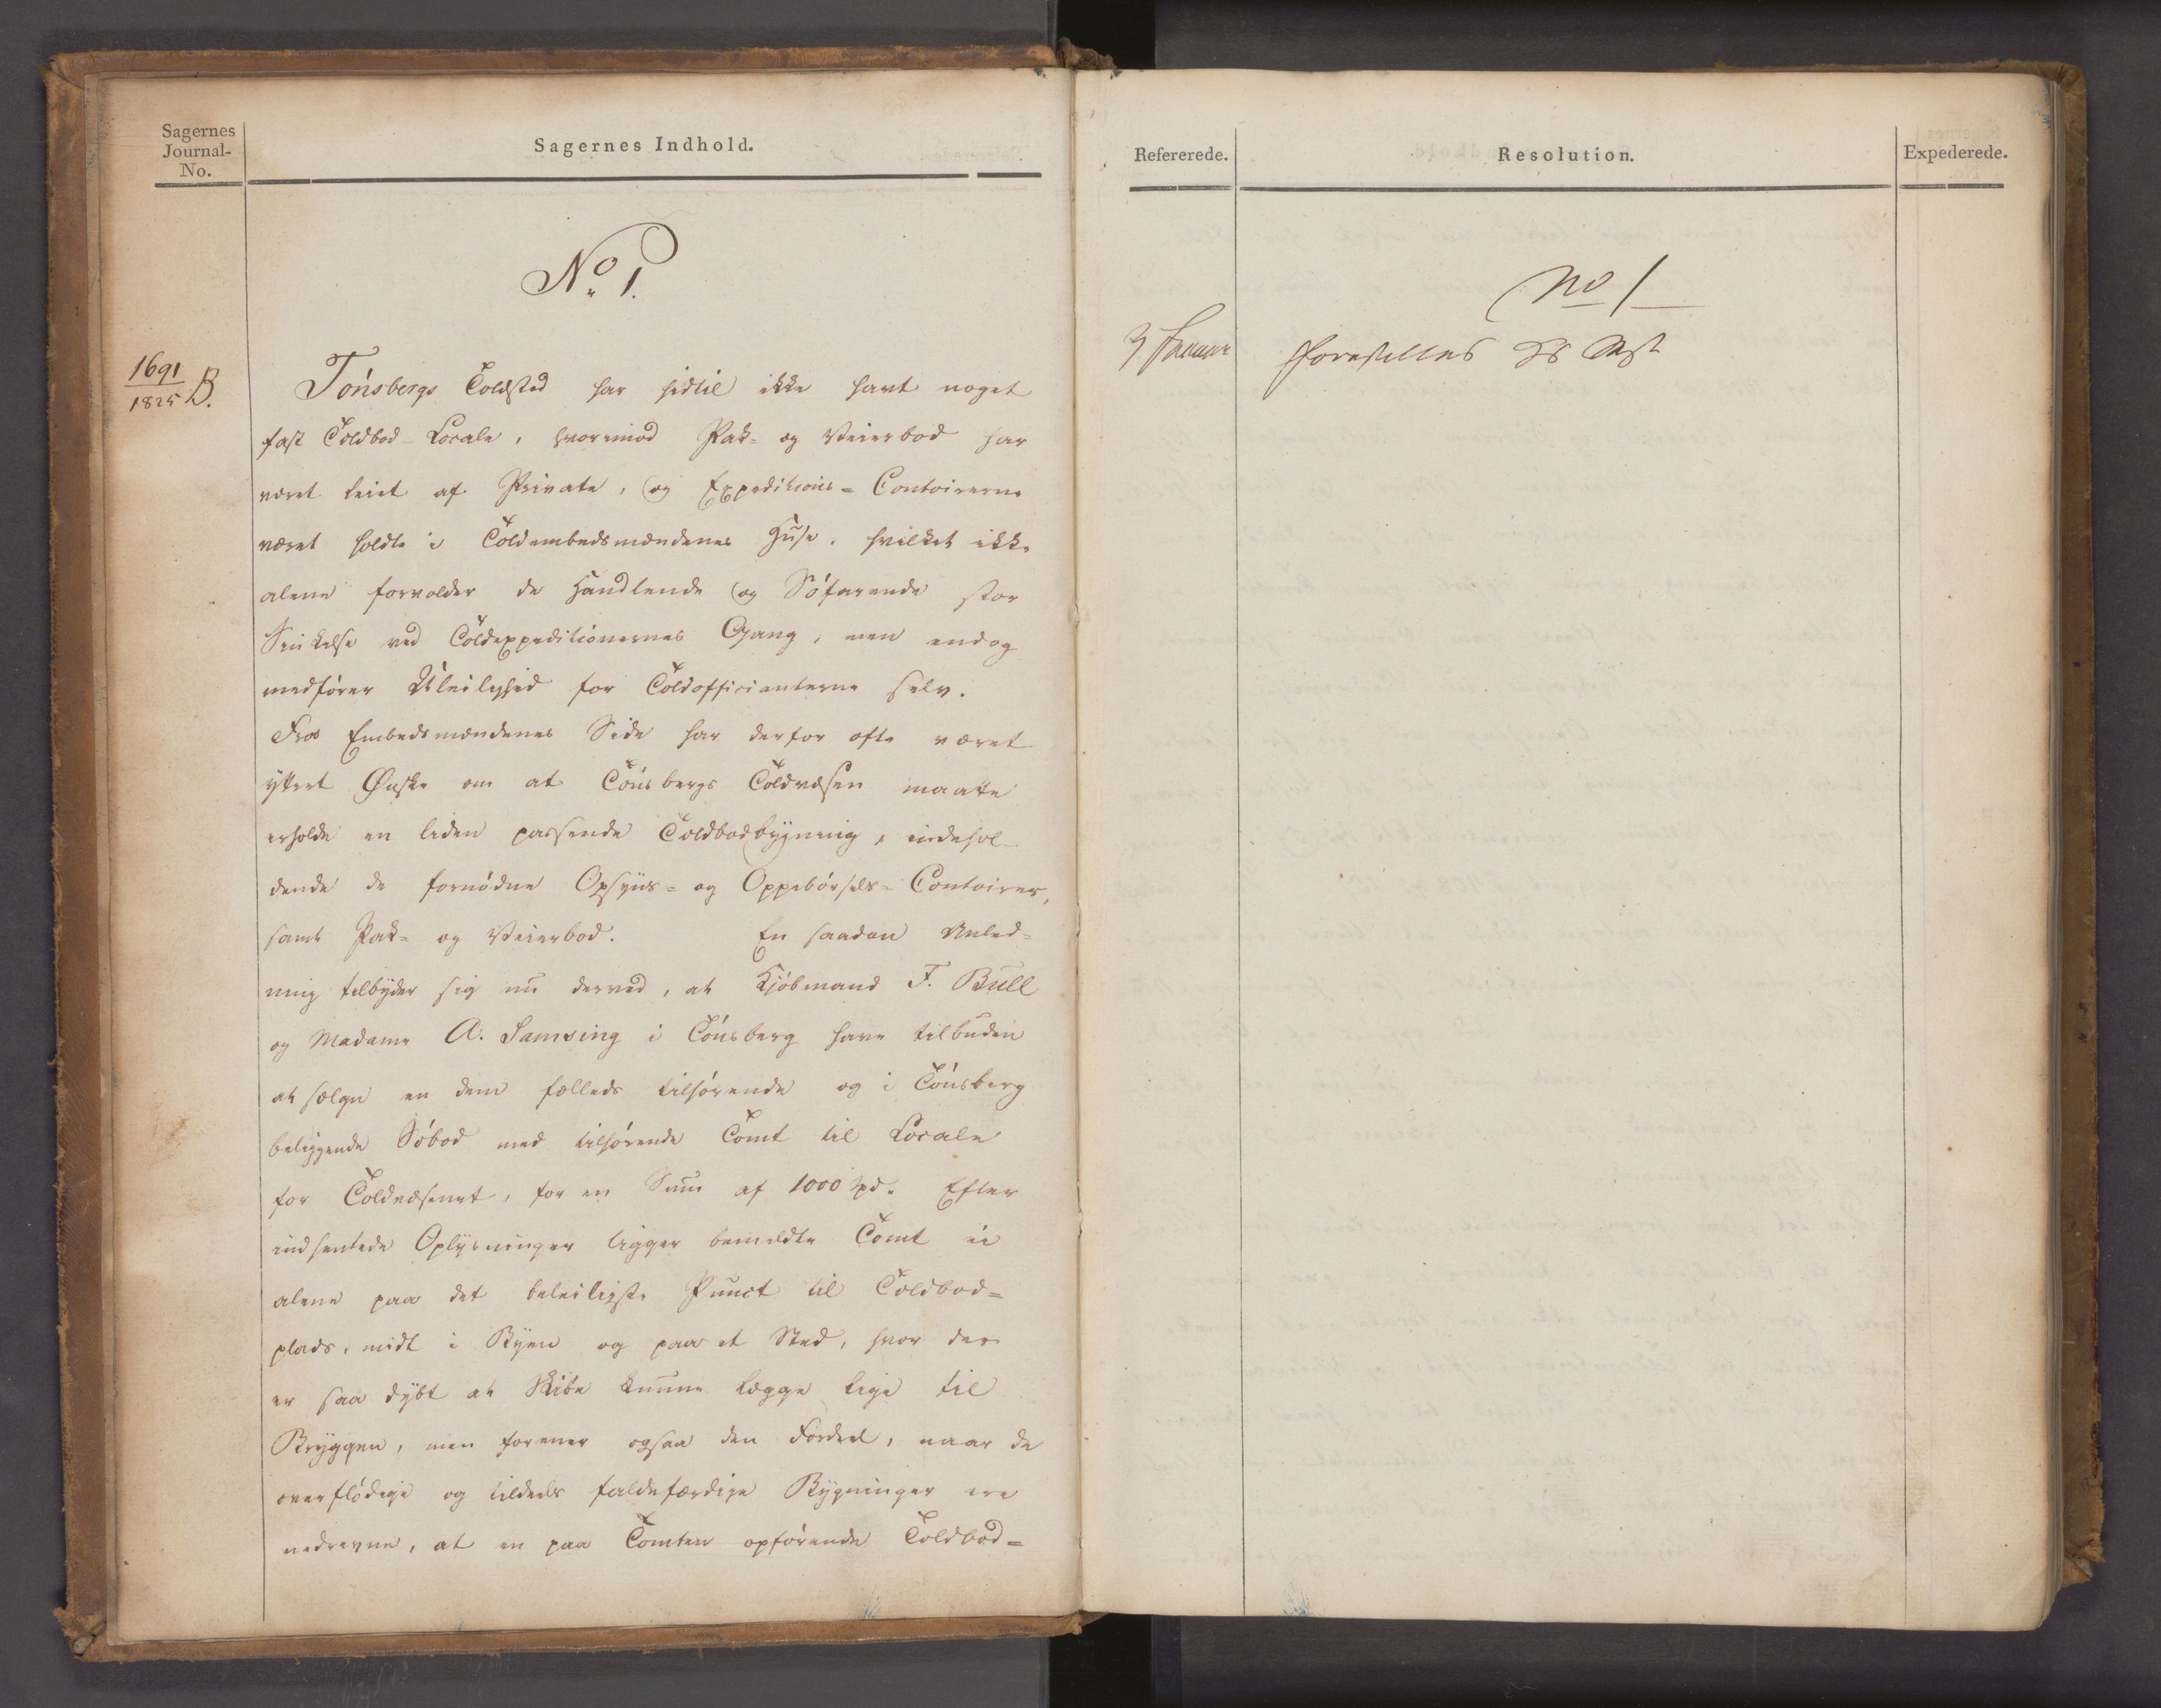 Sagernes
Journal-
No.
Sagernes Indhold.
No. 1.
1691
1825 B.
Tönsbergs Toldsted har hidtil ikke havt noget
fast Toldbod-Locale, hvorimod Pak- og Veierbod har
været leiet af Private, og Expeditions-Contoirerne
været holdte i Toldembedsmændenes Huse, hvilket ikke
alene forvolder de Handlende og Söfarende stor
Sinkelse ved Toldexpeditionernes Gang, men endog
medförer Uleilighed for Toldofficianterne selv.
Fra Embedsmændenes Side har derfor ofte været
yttret Ønske om at Tönsbergs Toldvæsen maatte
erholde en liden passende Toldbodbygning, indehol-
dende de fornödne Opsyns- og Oppebörsels-Contoirer,
samt Pak- og Veierbod. En saadan Anled-
ning tilbyder sig nu derved, at Kjöbmand F. Bull
og Madame A. Samsing i Tönsberg have tilbuden
at sælge en dem fælleds tilhörende og i Tönsberg
beliggende Söbod med tilhörende Tomt til Locale
for Toldvæsenet, for en Sum af 1000 Spd. Efter
indhentede Oplysninger ligger bemeldte Tomt ei
alene paa det beleiligste Punct til Toldbod-
plads, midt i Byen og paa et Sted, hvor der
er saa dybt at Skibe kunne lægge lige til
Bryggen, men forener ogsaa den Fordeel, naar de
overflödige og tildeels faldefærdige Bygninger ere
nedrevne, at en paa Tomten opförende Toldbod-
Refererede.
Resolution.
Expederede.
No 1
3 Januar
Forestilles